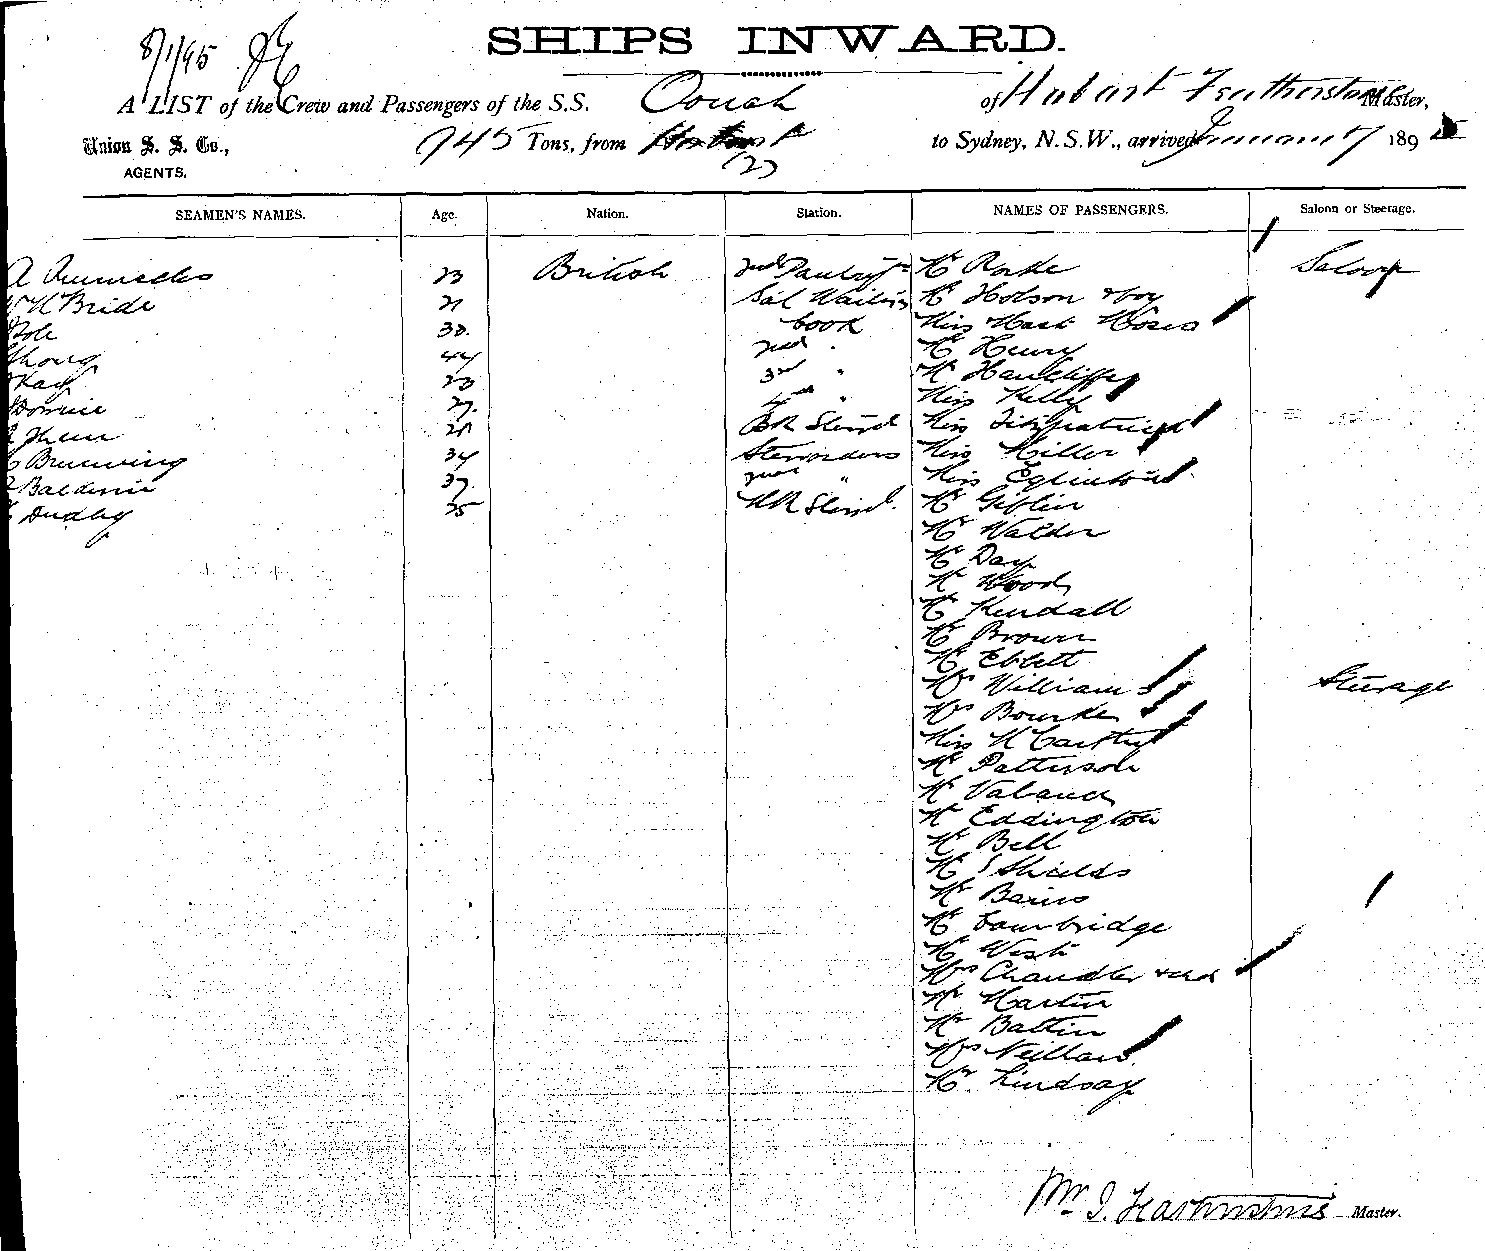 SHIPS INWARD.
8/1/95
A LIST of the Crew and Passengers of the S.S. Oonah of Hobart Featherstone Master,
Union S. S. Co., 745 Tons, from Hobart to Sydney, N.S.W., arrived January 7 1895
AGENTS. (2)
SEAMEN'S NAMES. Age. Nation. Station. NAMES OF PASSENGERS. Saloon or Steerage.
A 23 British 2nd Pantry Mr Rorke Saloon
McBride 21 Sal Waiting Mr Hobson & boy
30 Cook Miss Hart Moses
44 2nd " Mr Henry
Kay 23 3rd " Mr
Downie 27 4th " Miss Kelly
BR Stewd Miss Fitzpatrick
Brunning 34 Stewardess Miss Miller
Baldwin 37 2nd " Miss Eglinton
Dudley 35 Stewd. Mr Giblin
Mr Walder
Mr Day
Mr Wood
Mr Kendall
Mr Brown
Mr Eblett
Mrs Williams Steerage
Mrs Bourke
Miss McCarthy
Mr Patterson
Mr
Mr Eddington
Mr Bell
Mr Shields
Mr
Mr Cambridge
Mr West
Mrs Chandler
Mr Martin
Mr Battin
Mrs
Mr. Lindsay
Master.